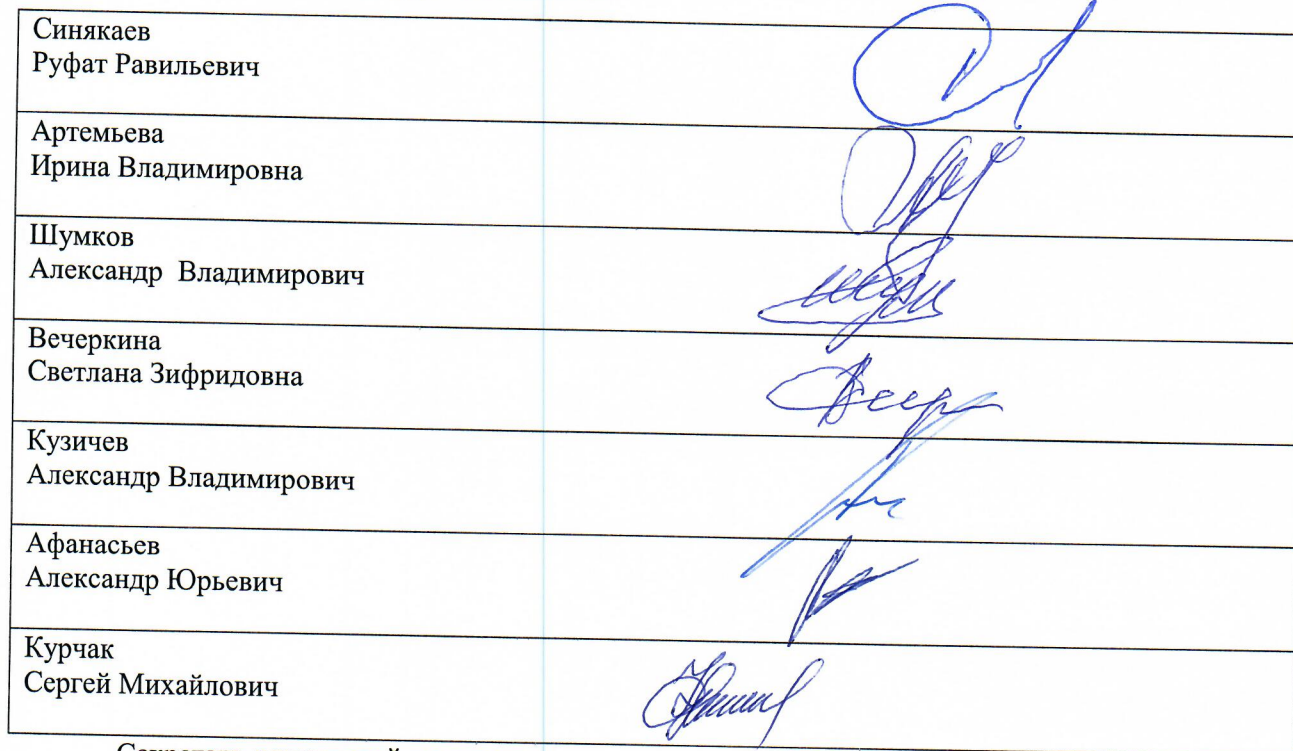 Синякаев
Руфат Равильевич
Артемьева
Ирина Владимировна
Шумков
Александр Владимирович
Вечеркина
Светлана Зифридовна
Кузичев
Александр Владимирович
Афанасьев
Александр Юрьевич
Курчак
Сергей Михайлович